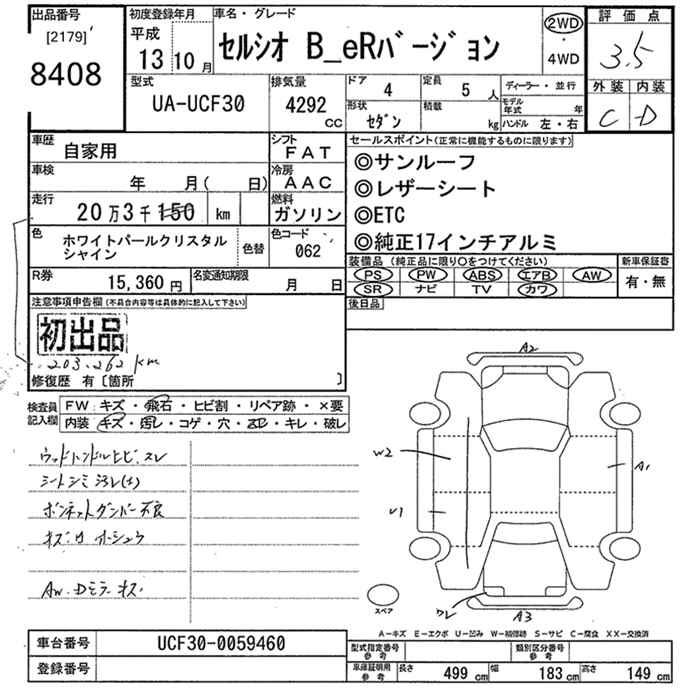 出品番号
[2179]
8408
初度登録年月
平成
13 10 月
車名・グレード
セルシオ B_eRバージョン
2WD
・
4WD
評価点
3.5
外装 内装
C -D
型式
UA-UCF30
排気量
4292 CC
ドア 4
定員 5 人
形状 セダン
積載 kg
ディーラー・並行
モデル年式 年
ハンドル 左・右
車歴 自家用
シフト FAT
車検 年 月( 日)
冷房 AAC
走行 20万3千150 km
燃料 ガソリン
色 ホワイトパールクリスタル
シャイン
色替
色コード 062
R券 15,360 円
名変通知期限 月 日
セールスポイント(正常に機能するものに限ります)
◎サンルーフ
◎レザーシート
◎ETC
◎純正17インチアルミ
装備品 (純正品に限り○をつけてください)
PS・PW・ABS・エアB・AW
SR・ナビ・TV・カワ・
新車保証書
有・無
後日品
注意事項申告欄(不具合内容等は具体的に記入して下さい)
初出品
203.262 km
修復歴 有〔箇所 〕
検査員
記入欄
FW:キズ・飛石・ヒビ割・リペア跡・×要
内装:キズ・汚レ・コゲ・穴・凹・キレ・破レ
ウッドハンドルヒビ.スレ
シートシミ
ボンネットダンパー不良
キズ
AW.Dミラーキズ
A2
W2
A1
U1
ワレ
A3
スペア
A-キズ E-エクボ U-凹み W-補修跡 S-サビ C-腐食 XX-交換済
車台番号 UCF30-0059460
登録番号
型式指定番号
参考
類別区分番号
参考
車庫証明用
参考
長さ 499 cm 幅 183 cm 高さ 149 cm